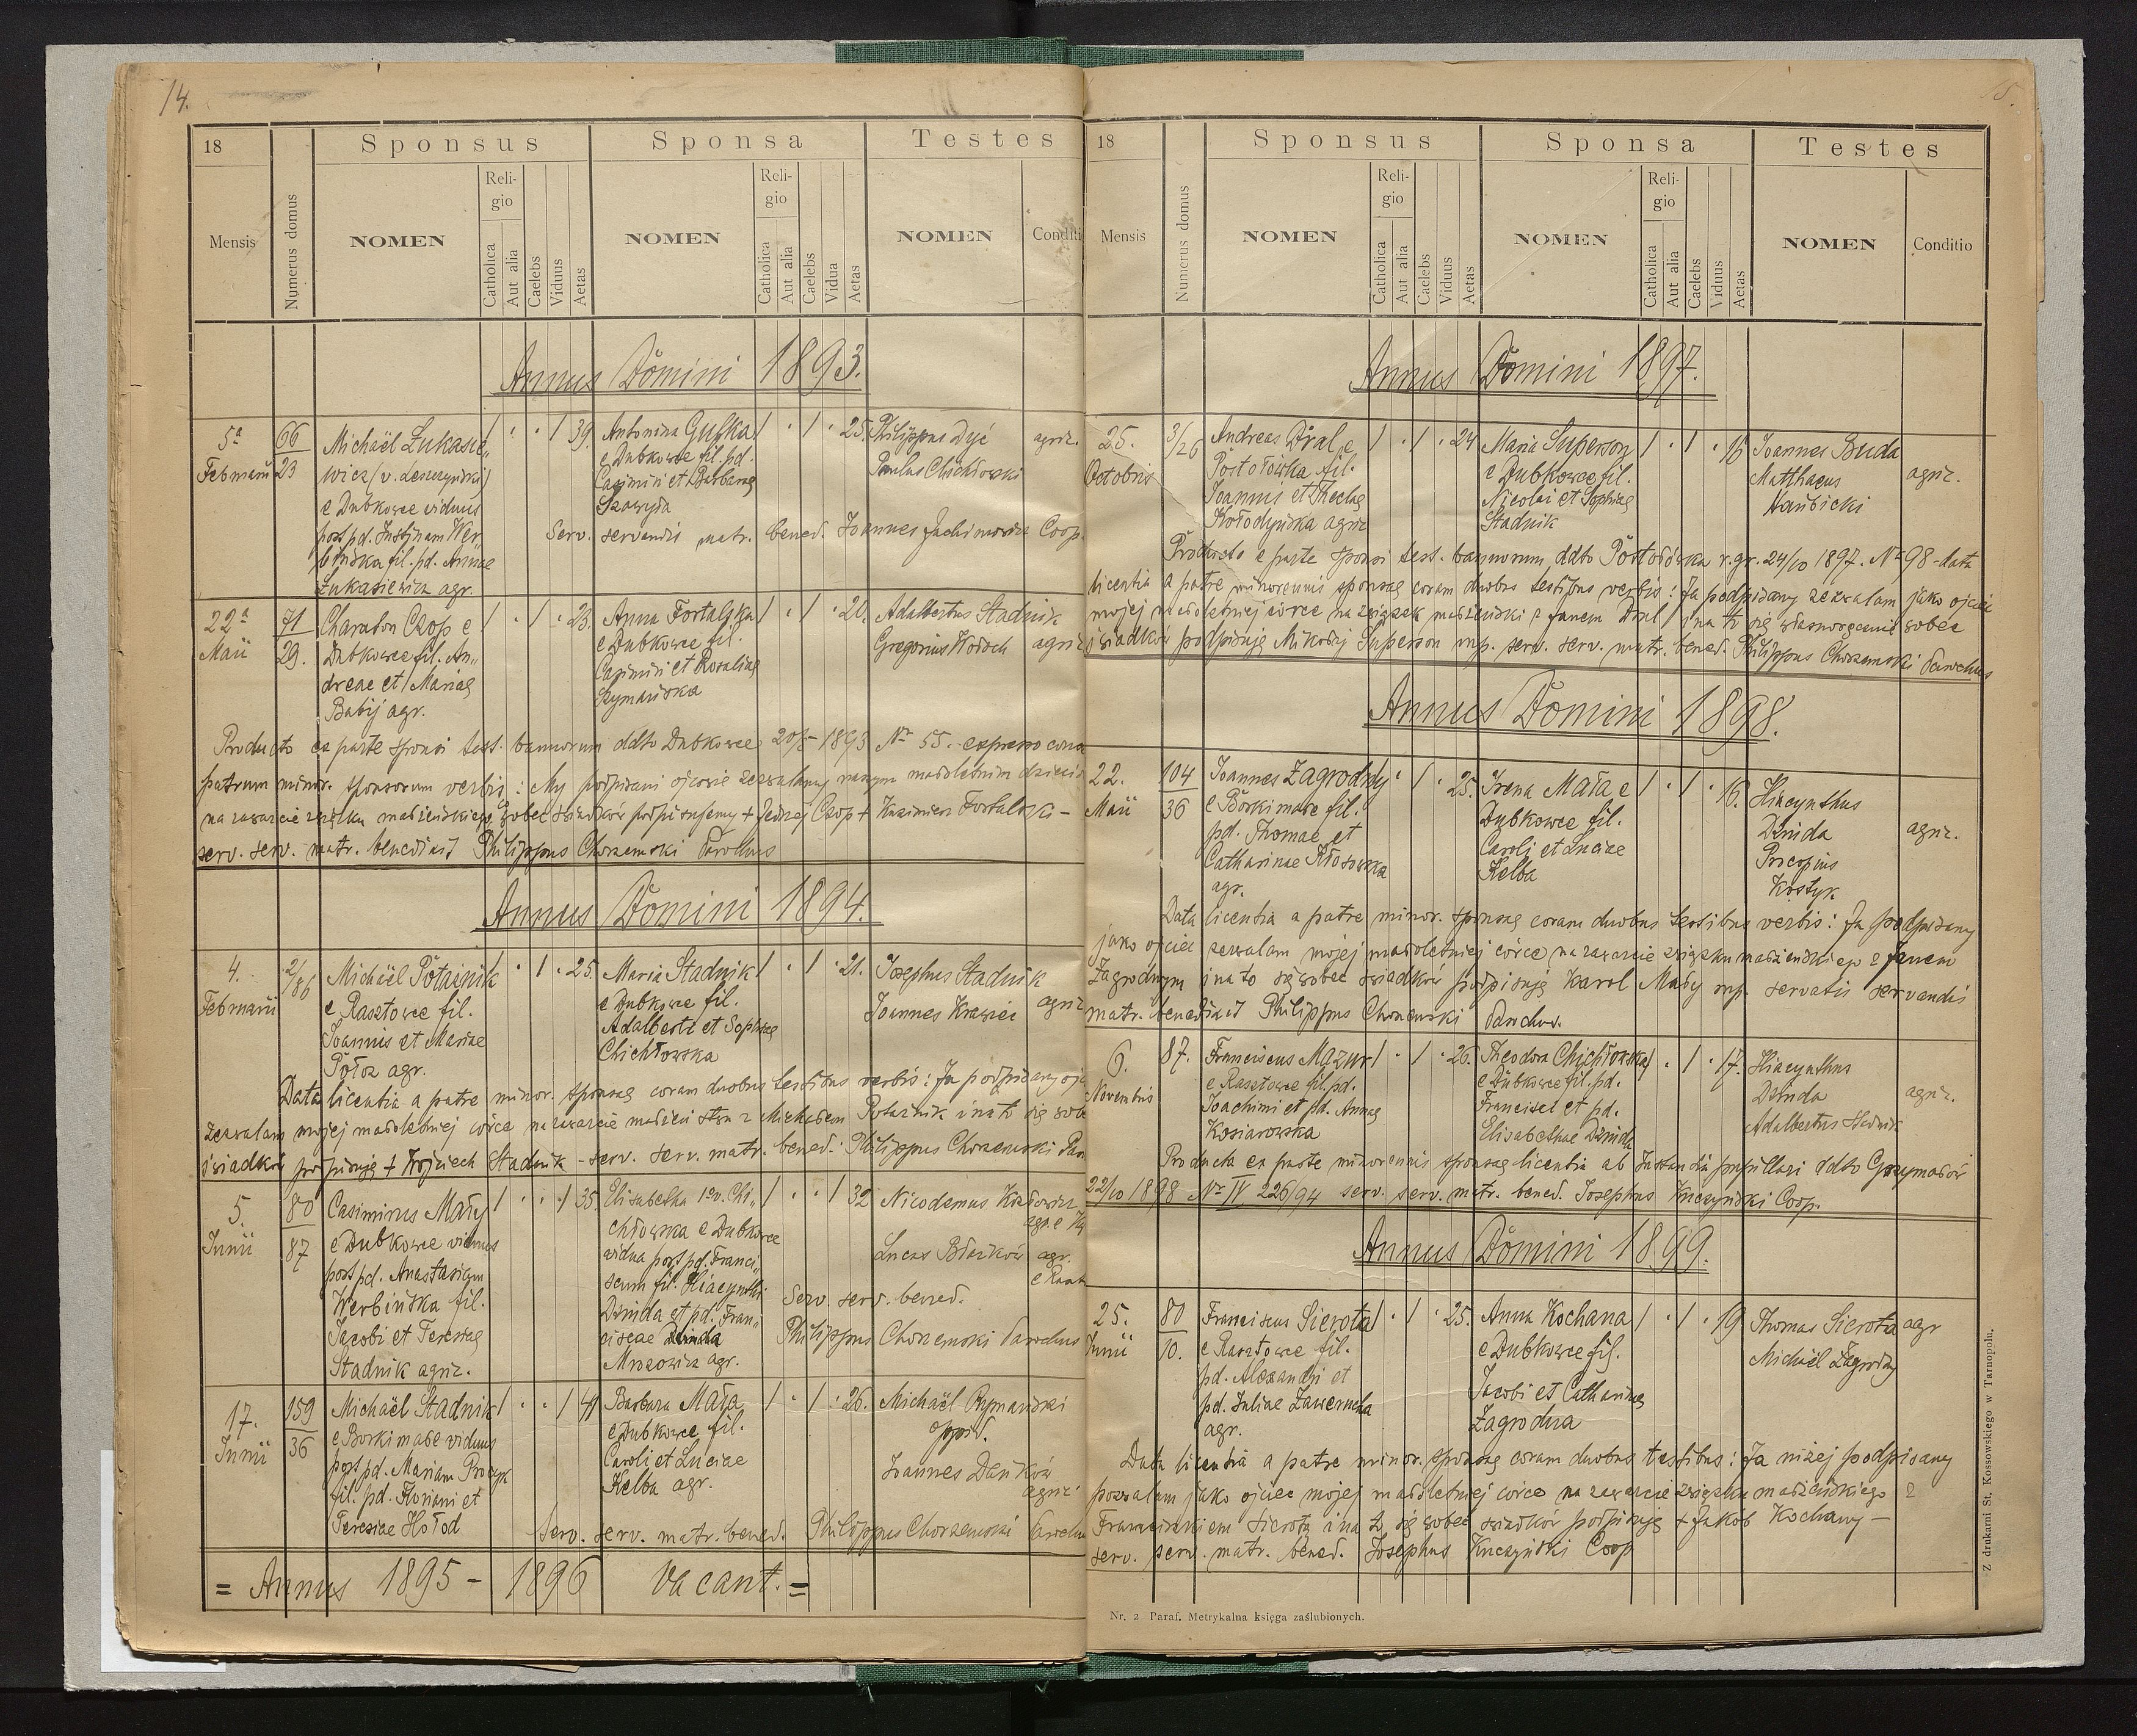 14.
18
Sponsus
Sponsa
Testes
Mensis
Numerus domus
NOMEN
Reli-
gio
Catholica
Aut alia
Caelebs
Viduus
Aetas
NOMEN
Reli-
gio
Catholica
Aut alia
Caelebs
Vidua
Aetas
NOMEN
Conditi
Annus Domini 1893.
5ª Februarii
66
23
Michaël Łukasie„
wicz (v. Leszczyński)
e Dubkowce viduus
post pd. Justinam Wer„
bińska fil. pd. Annae
Łukasiewicz agr.
39.
Antonina
e Dubkowce fil. pd.
Casimiri et Barbarae
25.
Philippus Dyć
Paulus Chichłowski
agric.
Serv. servandis matr. bened. Joannes Jachimowicz Coop.
22ª Maii
71
29.
Chariton Czop e
Dubkowce fil. An„
dreae et Mariae
Babij agr.
23.
Anna Fortalska
e Dubkowce fil.
Casimiri et Rosaliae
Szymańska
20.
Adalbertus Stadnik
Gregorius Kołoch
agric
Producto ex parte sponsi test. bannorum ddto Dubkowce 20/5 1893 Nr 55. expresso
patrum minor. sponsorum verbis: My podpisani ojcowie zezwalamy naszym małoletnim
na zawarcie związku małżeńskiego wobec świadków podpisujemy + Jędrzej Czop + Kazimierz Fortalski –
serv. serv. matr. benedixit Philippus Chorzemski Parochus
Annus Domini 1894.
4. Februarii
2/86
Michaël Potainik
e Rasztowce fil.
Joannis et Mariae
agr.
25.
Maria Stadnik
e Dubkowce fil.
Adalberti et Sophiae
Chichłowska
21.
Josephus Stadnik
Joannes Krawiec
agric
Data licentia a patre minor. sponsae coram duobus testibus verbis: Ja podpisany
zezwalam mojej małoletniej córce na zawarcie małżeństwa z Michałem Potainik i na to się
świadków podpisuję + Wojciech Stadnik – serv. serv. matr. bened. Philippus Chorzemski Par
5. Junii
80
87
Casimirus Mały
e Dubkowce viduus
post pd. Anastasiam
Werbińska fil.
Jacobi et Teresiae
Stadnik agric.
35.
Elisabetha 1º v. Chi„
chłowska e Dubkowce
vidua post pd. Franci„
scum fil. Hiacynthi
Dzinda et pd. Fran„
ciscae
Mrozowicz agr.
32
Nicodemus
Lucas
agr.
Serv. serv. bened.
Philippus Chorzemski Parochus
17. Junii
159
36
Michaël Stadnik
e Borki małe viduus
post pd. Mariam
fil. pd. Floriani et
Teresiae Hołod
Barbara Mała
e Dubkowce fil.
Caroli et Luciae
Kelba agr.
26.
Michaël Rymański
oppid.
Joannes Dańków
agric.
Serv. serv. matr. bened. Philippus Chorzemski
= Annus 1895 – 1896 vacant. =
15.
18
Sponsus
Sponsa
Testes
Mensis
Numerus domus
NOMEN
Reli-
gio
Catholica
Aut alia
Caelebs
Viduus
Aetas
NOMEN
Reli-
gio
Catholica
Aut alia
Caelebs
Viduus
Aetas
NOMEN
Conditio
Annus Domini 1897.
26. Octobris
3/26
Andreas Dral e
Postołówka fil.
Joannis et Theclae
Kołodyńska agric
24
Maria Superson
e Dubkowce fil.
Nicolai et Sophiae
Stadnik
16
Joannes Buda
Matthaeus
agric.
Producto e parte sponsi test. bannorum, ddto Postołówka r. gr. 24/10 1897. Nº 98 – data
licentia a patre minorennis sponsae coram duobus testibus verbis: Ja podpisany zezwalam jako ojciec
mojej małoletniej córce na związek małżeński z Janem Dral i na to się własnoręcznie wobec
świadków podpisuję Mikołaj Superson mp. serv. serv. matr. bened. Philippus Chorzemski Parochus
Annus Domini 1898.
22. Maii
104
36
Joannes Zagrodny
e Borki małe fil.
pd. Thomae et
Catharinae Kłosowska
agr.
25.
Irena Mała e
Dubkowce fil.
Caroli et Luciae
Kelba
16.
Hiacynthus
Dzinda
Procopius
Kostyk
agric.
Data licentia a patre minor. sponsae coram duobus testibus verbis: Ja podpisany
jako ojciec zezwalam mojej małoletniej córce na zawarcie związku małżeńskiego z Janem
Zagrodnym i na to się wobec świadków podpisuję Karol Mały mp. servatis servandis
matr. benedixit Philippus Chorzemski Parochus.
6. Novembris
87.
Franciscus Mazur
e Rasztowce fil. pd.
Joachimi et pd. Annae
Kosiarowska
26.
Theodora Chichłowska
e Dubkowce fil. pd.
Francisci et pd.
Elisabethae Dzinda
17.
Hiacynthus
Dzinda
Adalbertus Stadnik
agric.
Producta ex parte minorennis sponsae licentia ab Instantia pupillari ddto Grzymałów
22/10 1898 Nr IV 226/94 serv. serv. matr. bened. Josephus Kuczyński Coop.
Annus Domini 1899.
25. Junii
80
10.
Franciscus Sierota
e Rasztowce fil.
pd. Alexandri et
pd. Juliae Zawerucha
agr.
25.
Anna Kochana
e Dubkowce fil.
Jacobi et Catharinae
Zagrodna
19.
Thomas Sierota
Michaël Zagrodny
agr
Data licentia a patre minor. sponsae coram duobus testibus: Ja niżej podpisany
pozwalam jako ojciec mojej małoletniej córce na zawarcie związku małżeńskiego z
Franciszkiem Sierotą i na to się wobec świadków podpisuję + Jakób Kochany –
serv. serv. matr. bened. Josephus Kuczyński Coop
Nr. 2 Paraf. Metrykalna księga zaślubionych.
Z drukarni St. Kossowskiego w Tarnopolu.